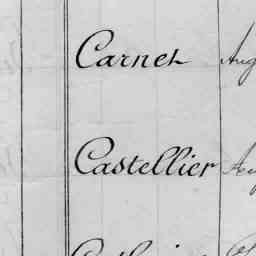 Carnet Aug
Castellier Aug